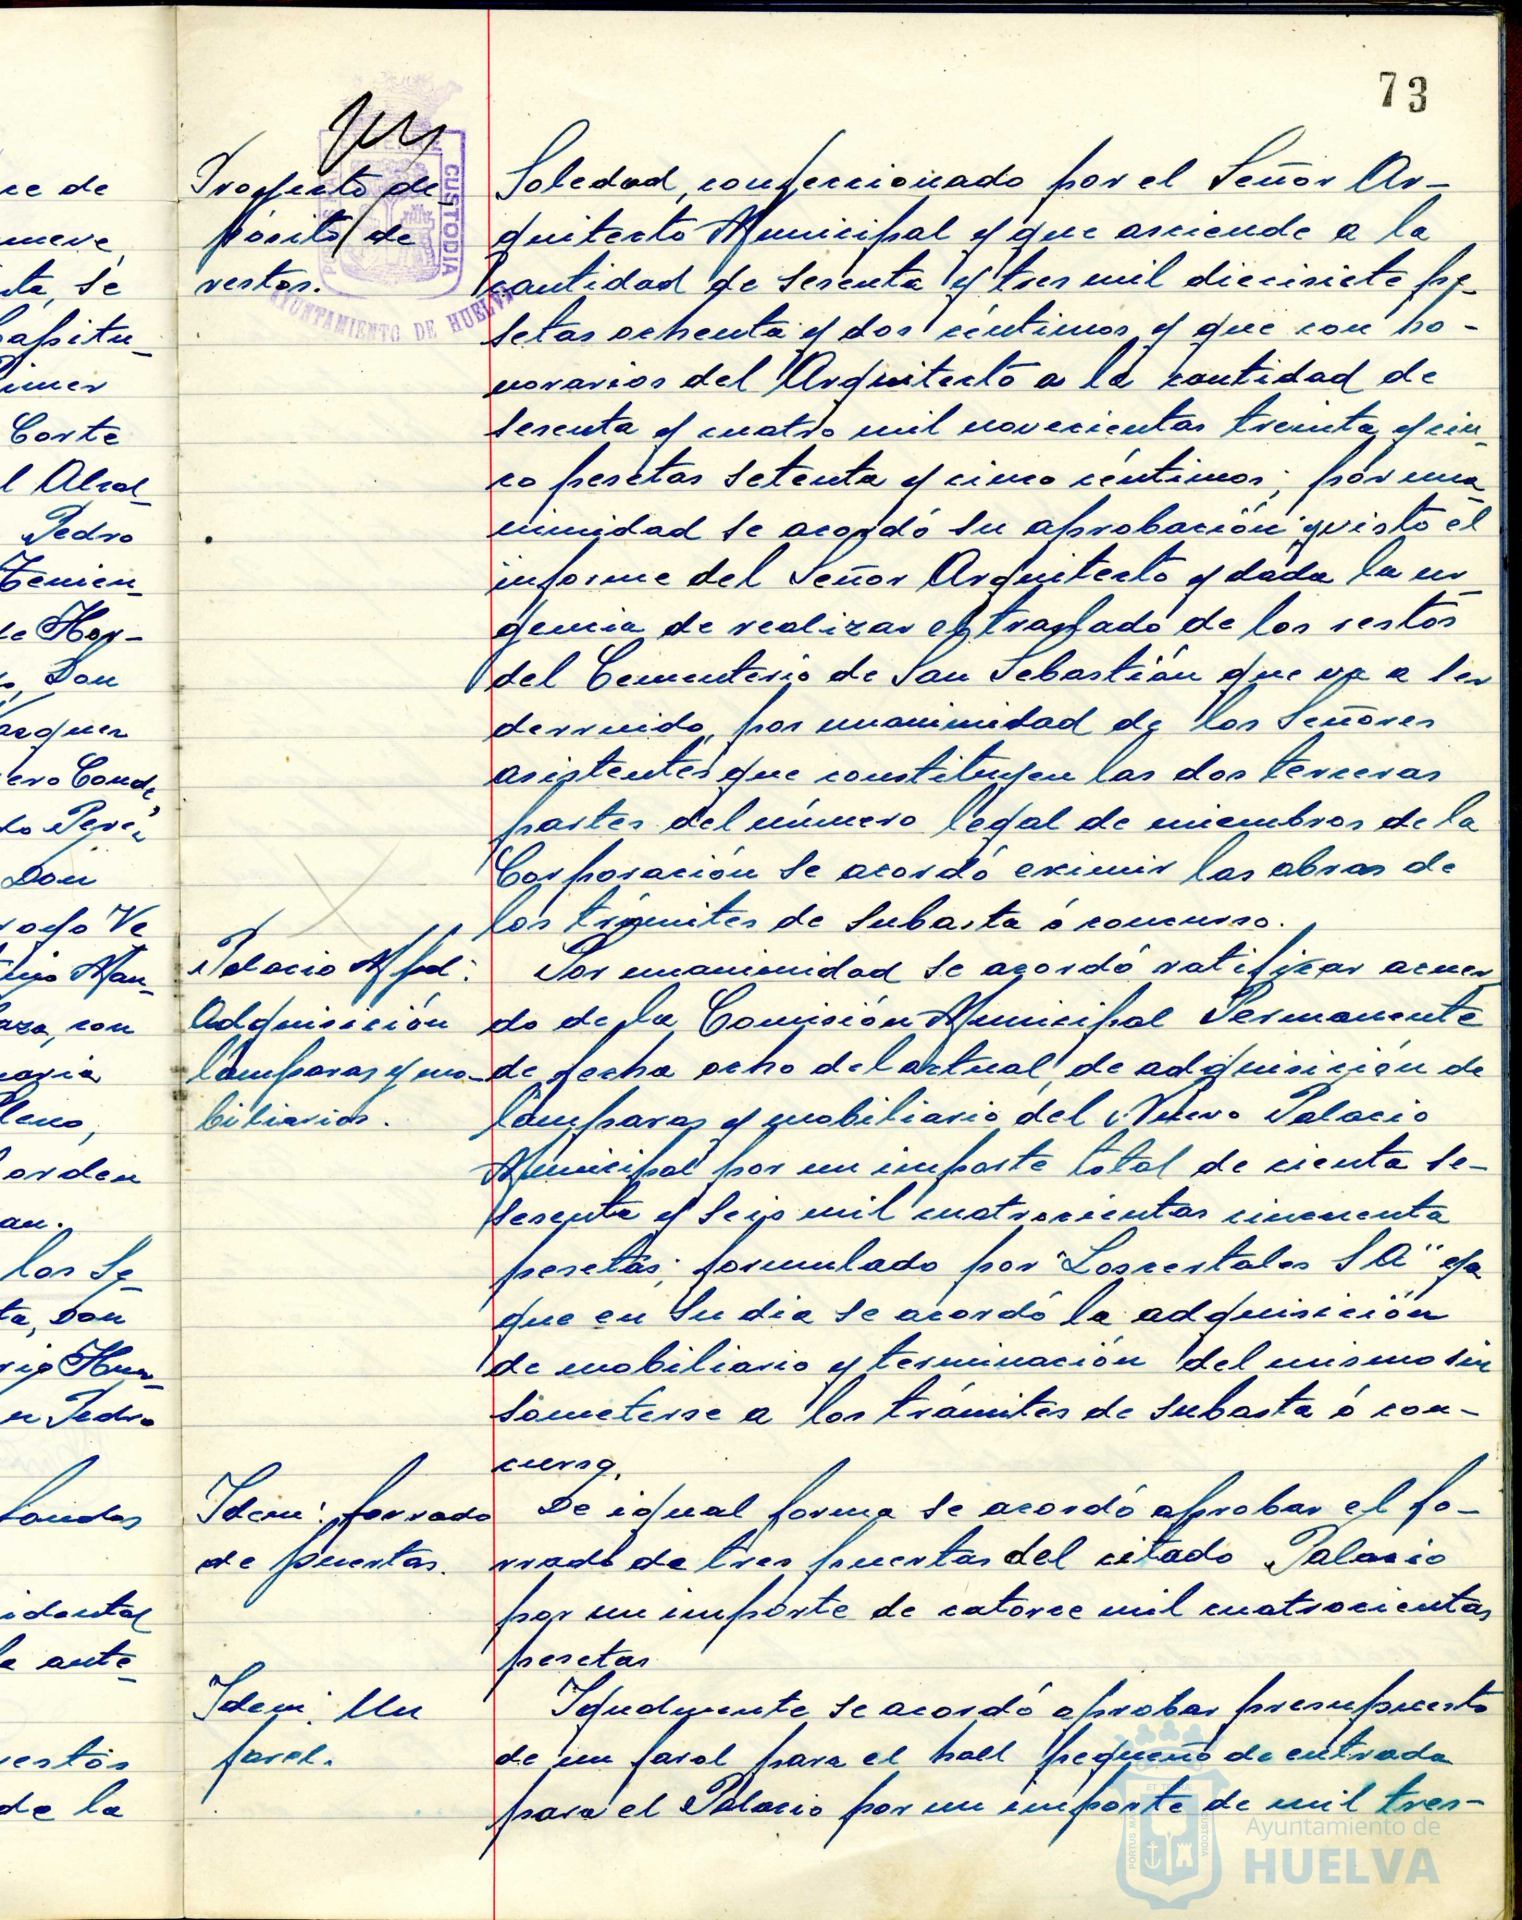 73
Proyecto de-
pósito de
restos.
CUSTODIA
AYUNTAMIENTO DE HUELVA
Soledad, confeccionado por el Señor Ar-
quitecto Municipal y que asciende a la
cantidad de sesenta y tres mil diecisiete pe-
setas ochenta y dos céntimos y que con ho-
norarios del Arquitecto a la cantidad de
sesenta y cuatro mil novecientas treinta y cin-
co pesetas setenta y cinco céntimos; por una-
nimidad se acordó su aprobación y visto el
informe del Señor Arquitecto y dada la ur-
gencia de realizar el traslado de los restos
del Cementerio de San Sebastián que va a ser
derruido, por unanimidad de los Señores
asistentes que constituyen las dos terceras
partes del número legal de miembros de la
Corporación se acordó eximir las obras de
los trámites de subasta ó concurso.
Palacio Mpal:
Adquisición
lámparas y mo-
biliarios.
Por unanimidad se acordó ratificar acuer-
do de la Comisión Municipal Permanente
de fecha ocho del actual, de adquisición de
lámparas y mobiliario del Nuevo Palacio
Municipal por un importe total de cienta se-
sesenta y seis mil cuatrocientas cincuenta
pesetas; formulado por "Loscertales S A" ya
que en su dia se acordó la adquisición
de mobiliario y terminación del mismo sin
someterse a los trámites de subasta ó con-
curso.
Idem: forrado
de puertas.
De igual forma se acordó aprobar el fo-
rrado de tres puertas del citado Palacio
por un importe de catorce mil cuatrocientas
pesetas
Idem: Un
farol.
Igualmente se acordó aprobar presupuesto
de un farol para el hall pequeño de entrada
para el Palacio por un importe de mil tres-
Ayuntamiento de
HUELVA
ce de
nueve,
ta, se
Capitu-
Primer
Corte
l Alcal-
Pedro
Tenien-
de Hor-
Don
Vazquez
ero Conde,
Don
royo Ve
Man-
aza, con
naria
Pleno,
orden
an.
los Se-
ta, Don
n Pedro
idental
a ante-
restos
de la